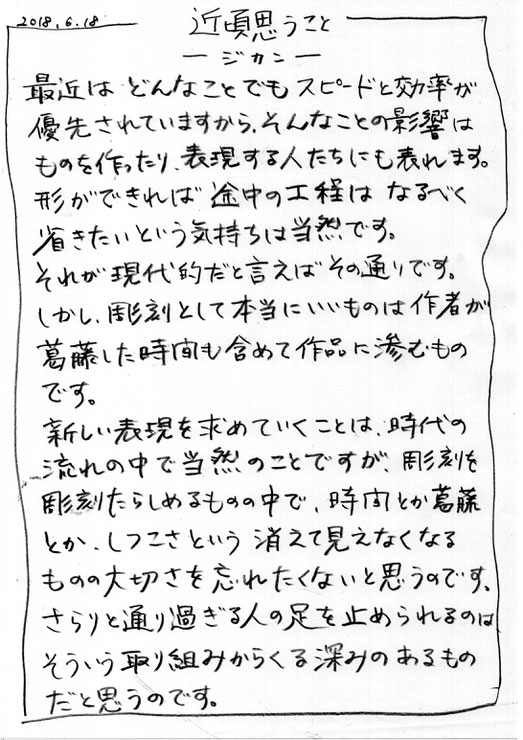 2018.6.18
近頃思うこと
ージカンー
最近は どんなことでも スピードと効率が
優先されていますから、そんなことの影響は
ものを作ったり、表現する人たちにも表れます。
形ができれば 途中の工程は なるべく
省きたいという気持ちは当然です。
それが現代的だと言えばその通りです。
しかし、彫刻として本当にいいものは作者が
葛藤した時間も含めて作品に滲むもの
です。
新しい表現を求めていくことは、時代の
流れの中で当然のことですが、彫刻を
彫刻たらしめるものの中で、時間とか葛藤
とか、しつこさという 消えて見えなくなる
ものの大切さを忘れたくないと思うのです、
さらりと通り過ぎる人の足を止められるのは
そういう取り組みからくる深みのあるもの
だと思うのです。